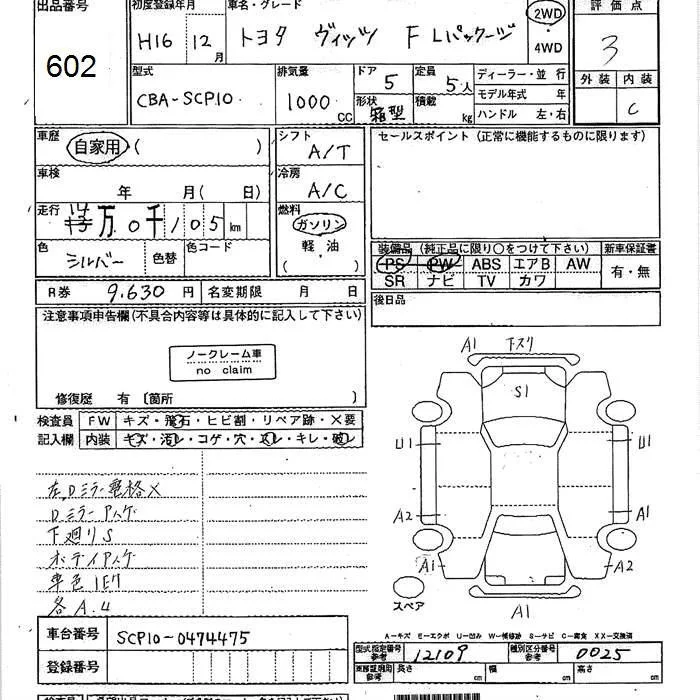 出品番号 初度登録年月 車名・グレード 2WD 評価点
602 H16 12月 トヨタ ヴィッツ F Lパッケージ ・ 3
4WD
型式 排気量 ドア 5 定員 5人 ディーラー・並行 外装 内装
CBA-SCP10 1000 CC 形状 箱型 積載 kg モデル年式 年 C
ハンドル 左・右
車歴 自家用 ( ) シフト A/T セールスポイント (正常に機能するものに限ります)
車検 年 月( 日) 冷房 A/C
走行 万 0千105 km 燃料 ガソリン
軽・油
( )
色 シルバー 色替 色コード 装備品 (純正品に限り○をつけて下さい) 新車保証書
PS PW ABS エアB AW 有・無
SR ナビ TV カワ
R券 9,630 円 名変期限 月 日 後日品
注意事項申告欄(不具合内容等は具体的に記入して下さい)
ノークレーム車
no claim
修復歴 有 〔箇所 〕
検査員 FW キズ・飛石・ヒビ割・リペア跡・X要
記入欄 内装 キズ・汚レ・コゲ・穴・スレ・キレ・破レ
A1 下スリ
S1
U1 A1
A2 A1
A1 A2
スペア A1
左Dミラー電格X
Dミラーアスケ
下廻りS
ボディアスケ
各A.4
A-キズ E-エクボ U-凹み W-補修跡 S-サビ C-腐食 XX-交換済
車台番号 SCP10-0474475
登録番号
型式指定番号 参考 12109 種別区分番号 参考 0025
長さ 幅 高さ